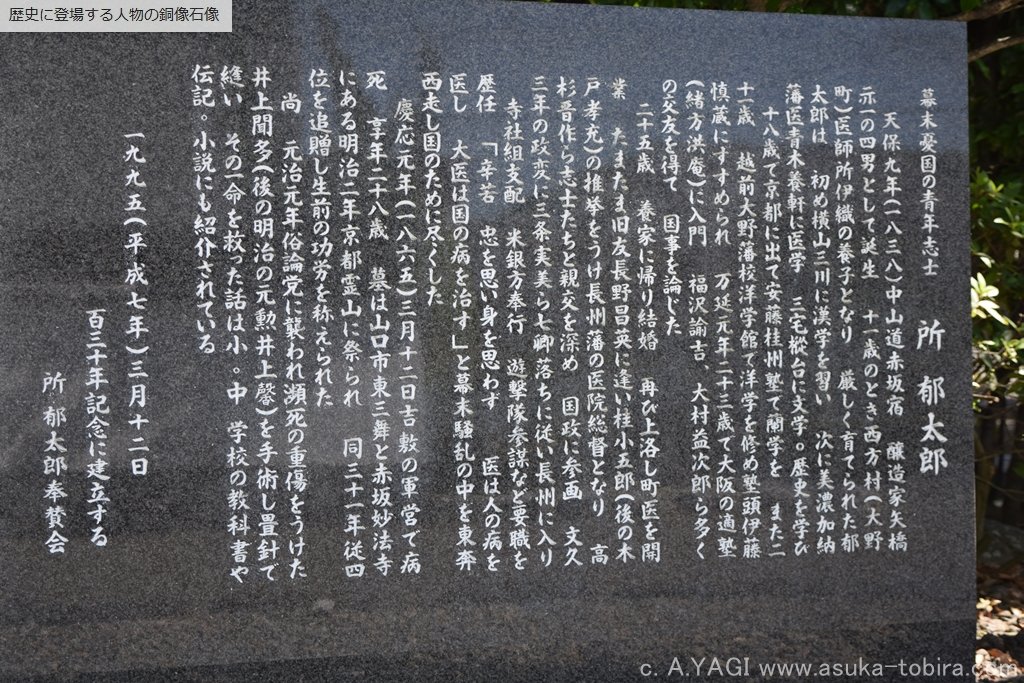 歴史に登場する人物の銅像石像
幕末憂国の青年志士　所　郁太郎
天保九年(一八三八)中山道赤坂宿　醸造家矢橋
示一の四男として誕生　十一歳のとき西方村(大野
町)医師所伊織の養子となり　厳しく育てられた郁
太郎は　初め横山三川に漢学を習い　次に美濃加納
藩医青木養軒に医学　三宅樅台に文学。歴史を学び
十八歳で京都に出て安藤桂州塾で蘭学を　また二
十一歳　越前大野藩校洋学館で洋学を修め塾頭伊藤
慎蔵にすすめられ　万延元年二十三歳で大阪の適塾
(緒方洪庵)に入門　福沢諭吉、大村益次郎ら多く
の父友を得て　国事を論じた
二十五歳　養家に帰り結婚　再び上洛し町医を開
業　たまたま旧友長野昌英に逢い桂小五郎(後の木
戸孝充)の推挙をうけ長州藩の医院総督となり　高
杉晋作ら志士たちと親交を深め　国政に参画　文久
三年の政変に三条実美ら七卿落ちに従い長州に入り
寺社組支配　米銀方奉行　遊撃隊参謀など要職を
歴任　「辛苦　忠を思い身を思わず　医は人の病を
医し　大医は国の病を治す」と幕末騒乱の中を東奔
西走し国のために尽くした
慶応元年(一八六五)三月十二日吉敷の軍営で病
死　享年二十八歳　墓は山口市東三舞と赤坂妙法寺
にある明治二年京都霊山に祭られ　同三十一年従四
位を追贈し生前の功労を称えられた
尚　元治元年俗論党に襲われ瀕死の重傷をうけた
井上聞多(後の明治の元勲井上馨)を手術し畳針で
縫い　その一命を救った話は小。中　学校の教科書や
伝記。小説にも紹介されている
一九九五(平成七年)三月十二日
百三十年記念に建立する
所　郁太郎奉賛会
c. A.YAGI www.asuka-tobira.com